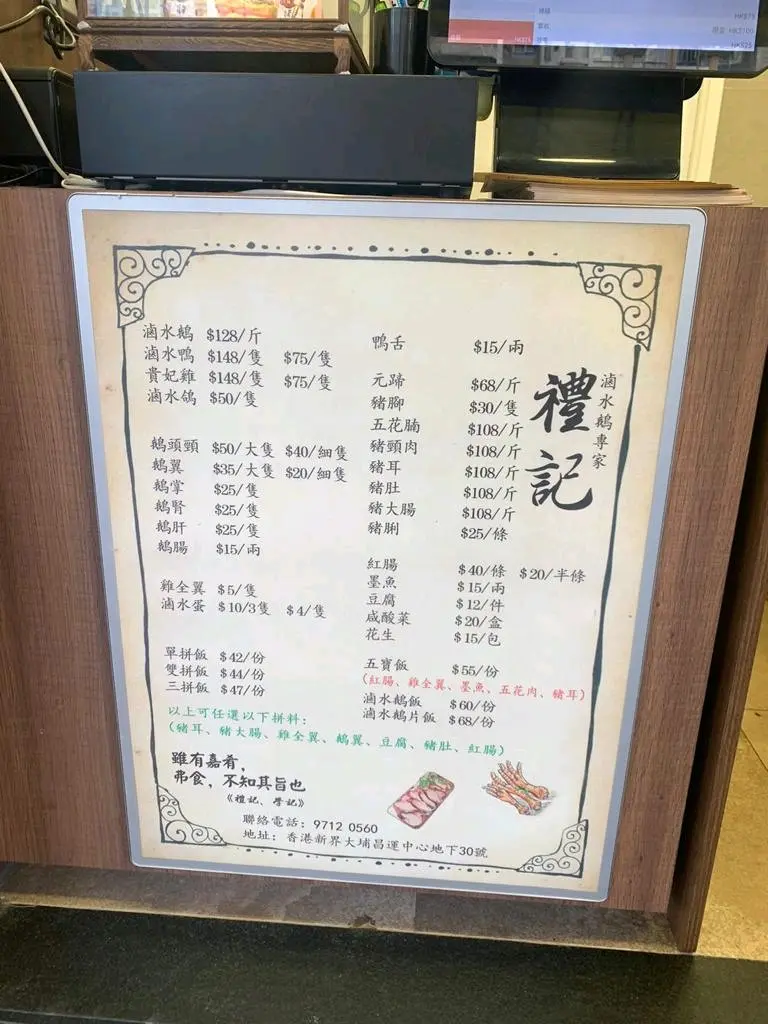 HK$75
現金 HK$100
HK$25
滷水鵝 $128/斤
滷水鴨 $148/隻 $75/隻
貴妃雞 $148/隻 $75/隻
滷水鴿 $50/隻
鵝頭頸 $50/大隻 $40/細隻
鵝翼 $35/大隻 $20/細隻
鵝掌 $25/隻
鵝腎 $25/隻
鵝肝 $25/隻
鵝腸 $15/兩
雞全翼 $5/隻
滷水蛋 $10/3隻 $4/隻
單拼飯 $42/份
雙拼飯 $44/份
三拼飯 $47/份
以上可任選以下拼料:
(豬耳、豬大腸、雞全翼、鵝翼、豆腐、豬肚、紅腸)
鴨舌 $15/兩
元蹄 $68/斤
豬腳 $30/隻
五花腩 $108/斤
豬頸肉 $108/斤
豬耳 $108/斤
豬肚 $108/斤
豬大腸 $108/斤
豬脷 $25/條
紅腸 $40/條 $20/半條
墨魚 $15/兩
豆腐 $12/件
咸酸菜 $20/盒
花生 $15/包
五寶飯 $55/份
(紅腸、雞全翼、墨魚、五花肉、豬耳)
滷水鵝飯 $60/份
滷水鵝片飯 $68/份
滷水鵝專家
禮記
雖有嘉肴,
弗食,不知其旨也
《禮記、學記》
聯絡電話: 9712 0560
地址: 香港新界大埔昌運中心地下30號